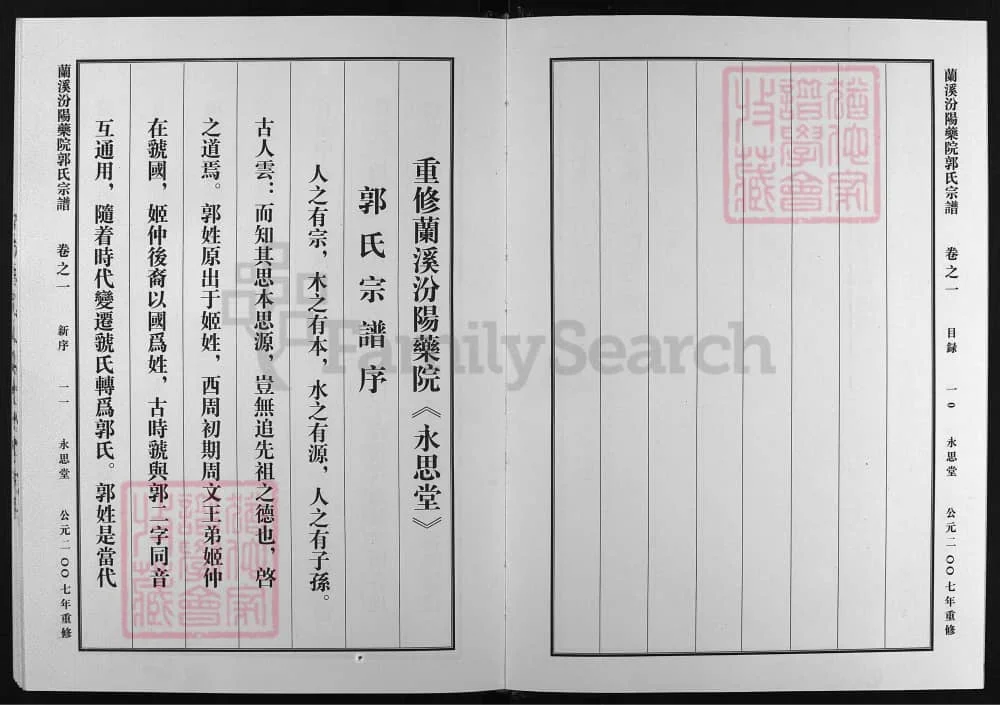 蘭溪汾陽藥院郭氏宗譜 卷之一 目録 一0 永思堂 公元二00七年重修
猶他家
譜學會
特藏
重修蘭溪汾陽藥院《永思堂》
郭氏宗譜序
人之有宗，木之有本，水之有源，人之有子孫。
古人雲：而知其思本思源，豈無追先祖之德也，啓
之道焉。郭姓原出于姬姓，西周初期周文王弟姬仲
在虢國，姬仲後裔以國爲姓，古時虢與郭二字同音
互通用，隨着時代變遷虢氏轉爲郭氏。郭姓是當代
猶他家
譜學會
特藏
蘭溪汾陽藥院郭氏宗譜 卷之一 新序 一一 永思堂 公元二00七年重修
FamilySearch